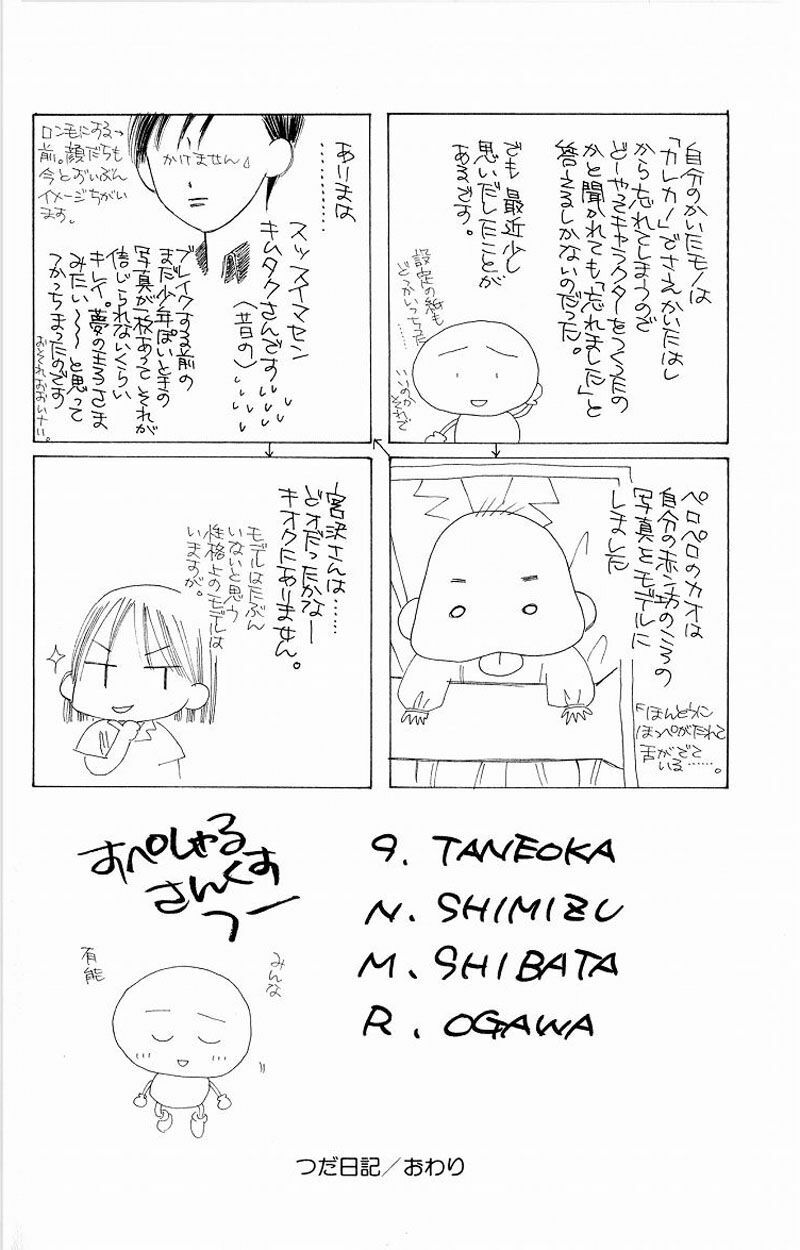 自分のかいたモノは
「カレカノ」でさえかいたはし
から忘れてしまうので
どーやってキャラクターをつくるの
かと聞かれても「忘れました」と
答えるしかないのだった。
でも 最近少し
思いだしたことが
あるです。
設定の紙も
どっかいっちゃった……
ペロペロのカオは
自分の赤ン坊のころの
写真をモデルに
しました
「ほんとうに
ほっぺがたれて
舌がでて
いる……。
ありまは
………
スッスイマセン
キムタクさんです
(昔の)
ブレイクする前の
まだ少年ぽいときの
写真が一枚あって それが
信じられないくらい
キレイ。夢の王子さま
みたい〜〜 と思って
つかっちまったのです
おそれおおいナリ。
かけません
ロン毛にする
前。顔だちも
今とずいぶん
イメージちがい
ます。
宮沢さんは……
どオだったかなー
キオクにありません。
モデルはたぶん
いないと思う
性格上のモデルは
いますが。
すぺしゃる
さんくす
つー
9. TANEOKA
N. SHIMIZU
M. SHIBATA
R. OGAWA
みんな
有能
つだ日記／おわり